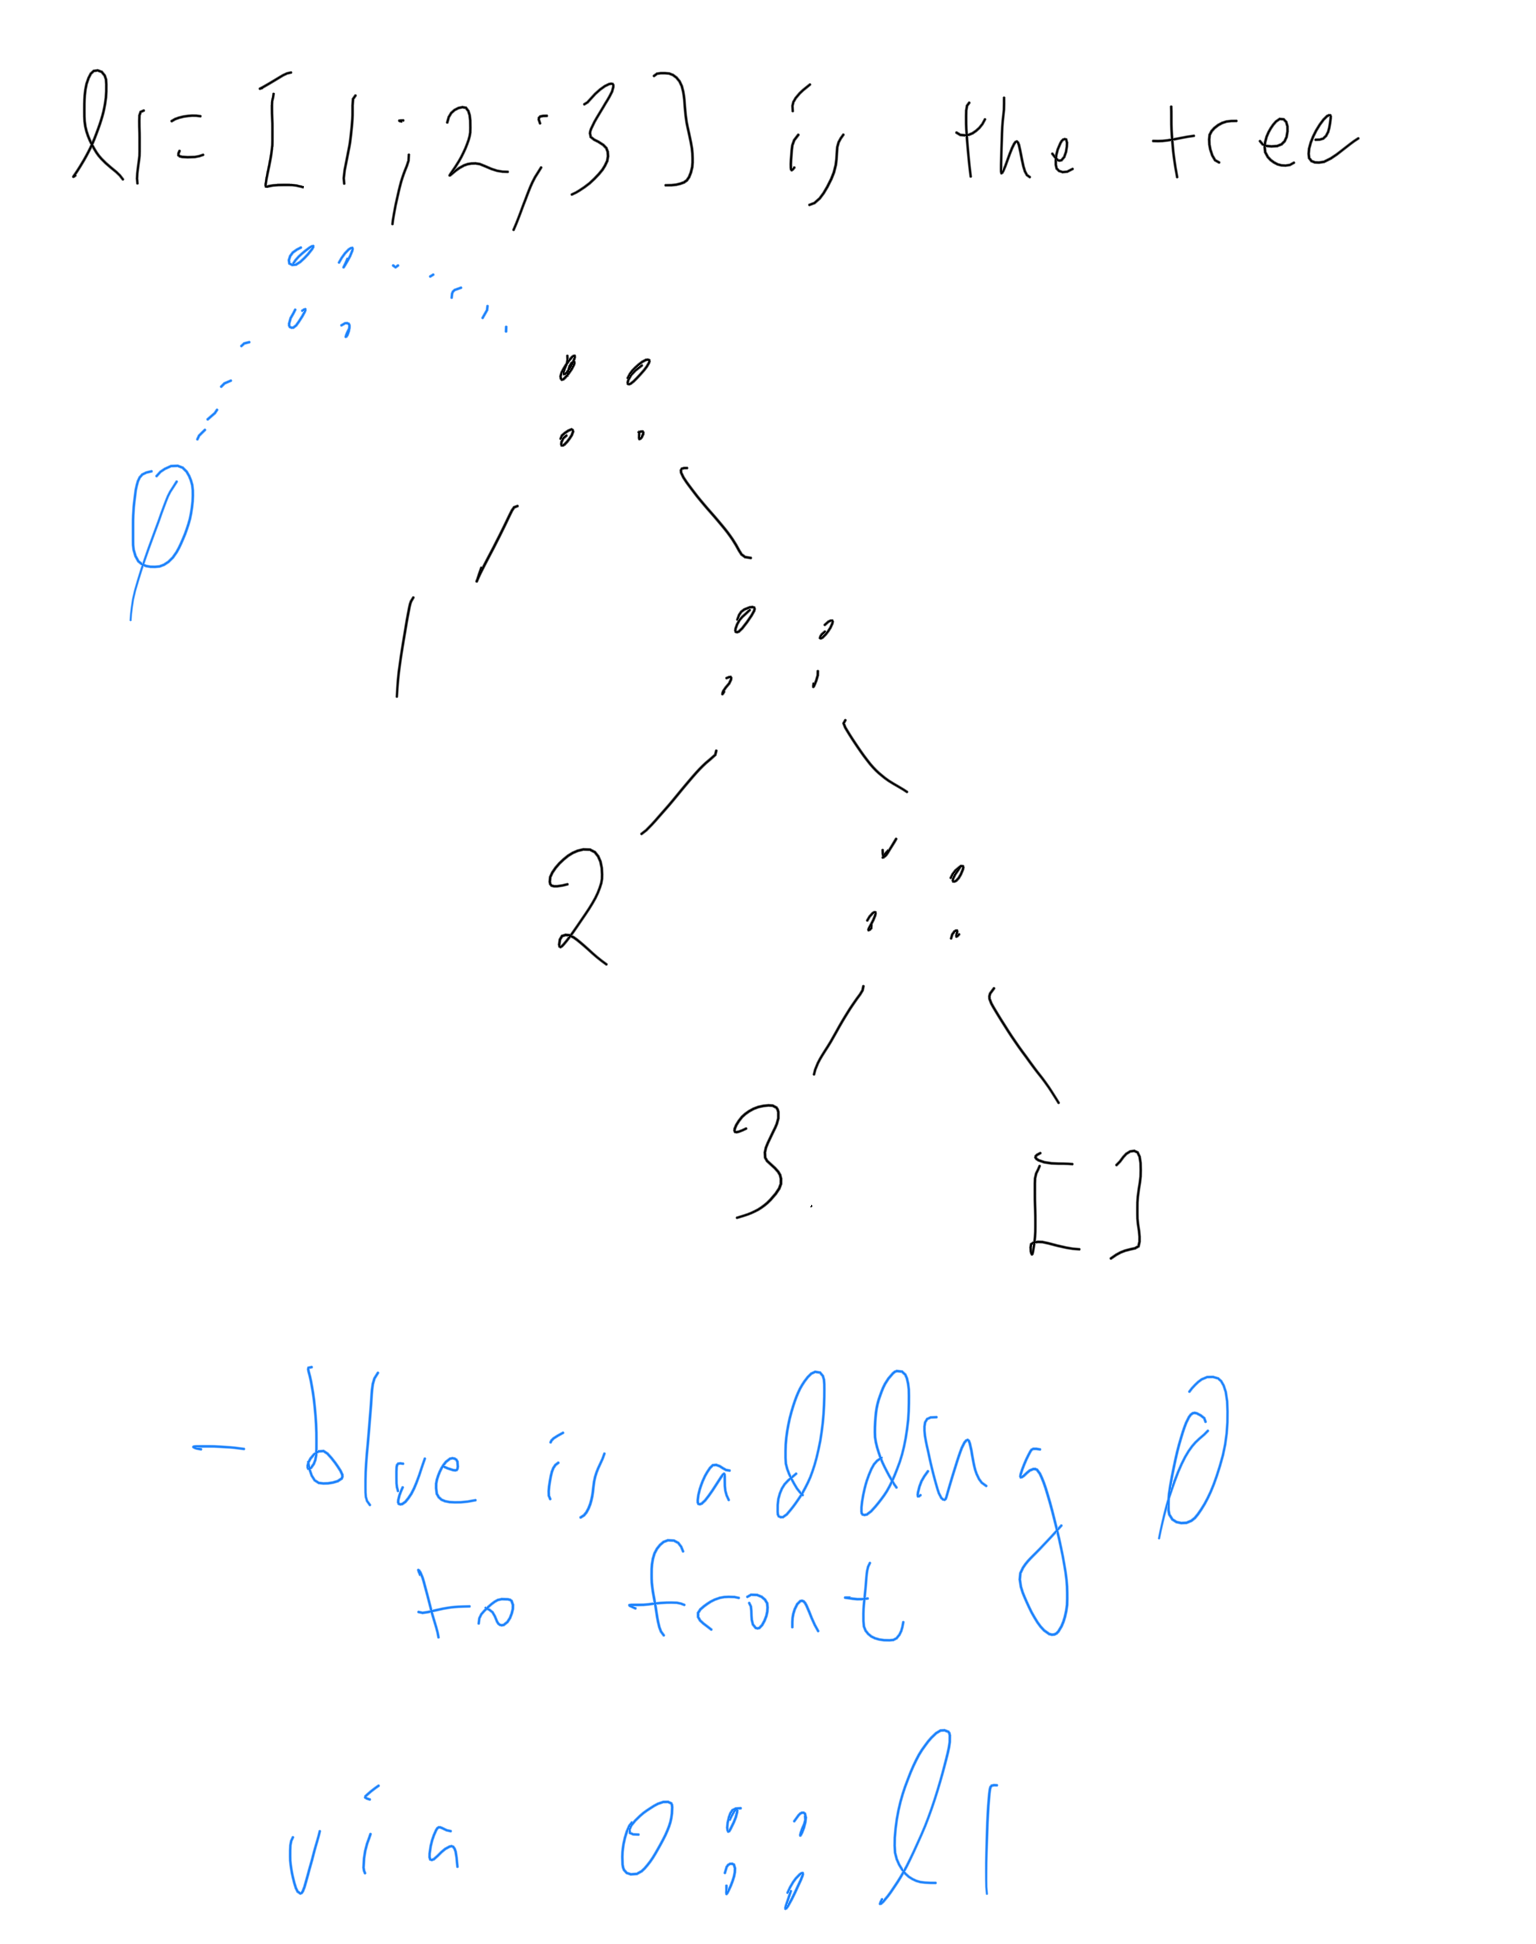 l1 = [1;2;3] is the tree
::
::
0
1
::
2
::
3
[]
- blue is adding 0
to front
via 0::l1